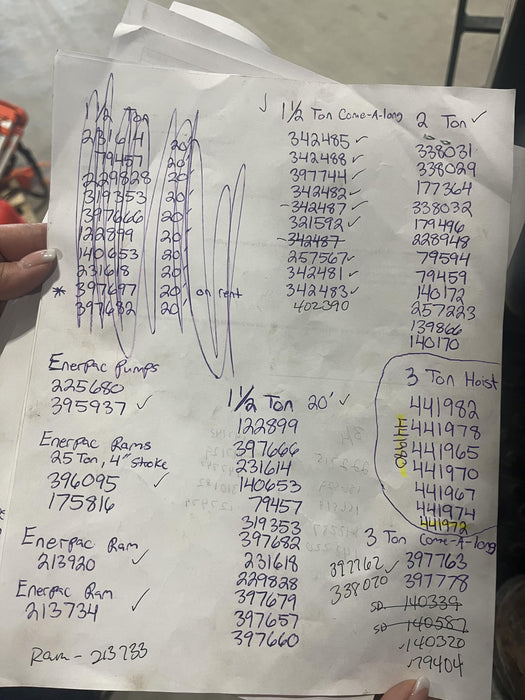 1 1/2 Ton
231614 20'
79457 20'
229828 20'
319353 20'
397666 20'
122899 20'
140653 20'
231618 20'
* 397697 20' on rent
397682 20'
1 1/2 Ton Come-A-long
342485 ✓
342488 ✓
397744 ✓
342482 ✓
-342487 ✓
321592 ✓
342487
257567 ✓
342481 ✓
342483 ✓
402390
2 Ton ✓
338031
338029
177364
338032
179496
228948
79594
79459
140172
257223
139866
140170
Enerpac Pumps
225680
395937 ✓
Enerpac Rams
25 Ton, 4" stroke
396095 ✓
175816
Enerpac Ram
213920 ✓
Enerpac Ram
213734 ✓
Ram - 213733
1 1/2 Ton 20' ✓
122899
397666
231614
140653
79457
319353
397682
231618
229828
397679
397657
397660
3 Ton Hoist
441982
441978
441965
441970
441967
441974
441972
441980
3 Ton Come-A-long
397762 ✓ 397763
338020 397778
SD 140339
SD 140587
✓140320
✓79404